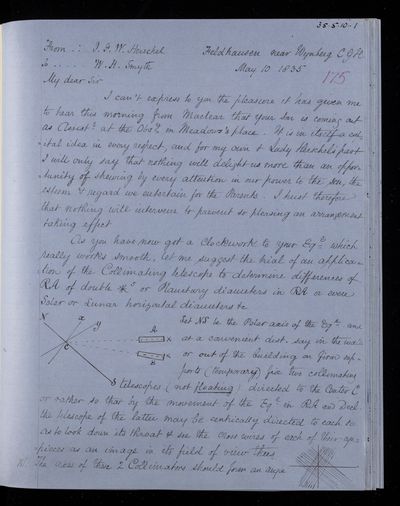 35-5-10-1
From .: J. F. W. Herschel Feldhausen near Wynberg C.G.H.
To ..... W. H. Smyth May 10 1835
175
My dear Sir
I can't express to you the pleasure it has given me
to hear this morning from Maclear that your son is coming out
as Assist.t at the Obs.y in Meadows's place. It is in itself a cap-
ital idea in every respect, and for my own & Lady Herschel's part
I will only say that nothing will delight us more than an oppor-
tunity of shewing by every attention in our power to the Son, the
esteem & regard we entertain for the Parents. I trust therefore
that nothing will intervene to prevent so pleasing an arrangement
taking effect
As you have now got a Clockwork to your Eq.l which
really works smooth, let me suggest the trial of an applica-
tion of the Collimating telescope to determine differences of
RA of double *s or Planetary diameters in RA or even
Solar or Lunar horizontal diameters &c
N x y A x B x C S
Let NS be the Polar axis of the Eq.l and
at a convenient dist. say in the wall
or out of the building on firm sup-
ports (temporary) fix two collimating
telescopes (not floating) directed to the Center C
or rather so that by the movement of the Eq.l in RA and Decl.
the telescope of the latter may be centrically directed to each so
as to look down its throat & see the cross wires of each of their eye-
pieces as an image in its field of view thus
The axes of these 2 Collimators should form an angle